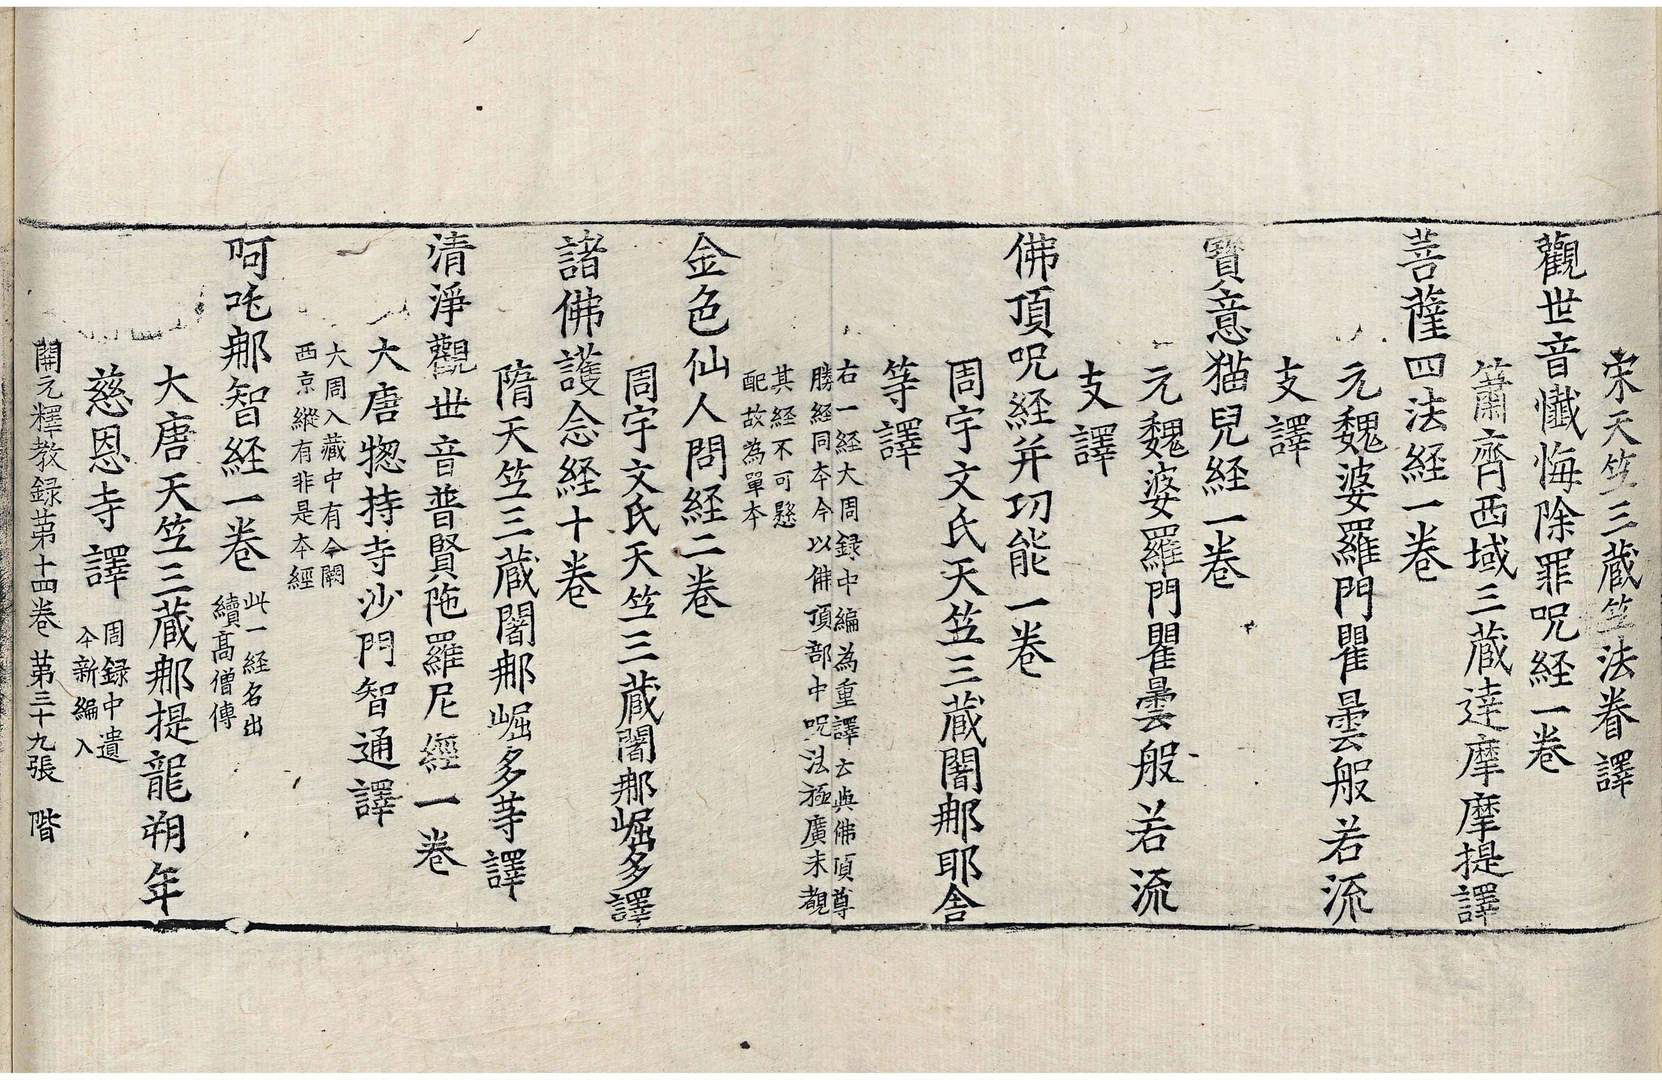 宋天笁三蔵笁法眷譯
觀世音懴悔除罪呪経一巻
簫齊西域三蔵達摩摩提譯
菩薩四法経一巻
元魏婆羅門瞿曇般若流
支譯
寳意猫兒経一巻
元魏婆羅門瞿曇般若流
支譯
佛頂呪経并㓛能一巻
周宇文氏天笁三蔵闍那耶舎
等譯
右一経大周録中編為重譯云與佛頂尊
勝経同夲今以佛頂部中呪法極廣未覩
其経不可懸
配故為單夲
金色仙人問経二巻
周宇文氏天笁三蔵闍那崛多譯
諸佛護念経十巻
隋天笁三蔵闍那崛多䓁譯
清淨觀世音普賢陁羅尼經一巻
大唐揔持寺沙門智通譯
大周入藏中有今闕
西京縱有非是夲經
呵吒那智経一巻
此一経名出
續髙僧傳
大唐天笁三蔵那提龍朔年
慈恩寺譯
周録中遺
今新編入
開元釋教録苐十四巻 苐三十九張 階